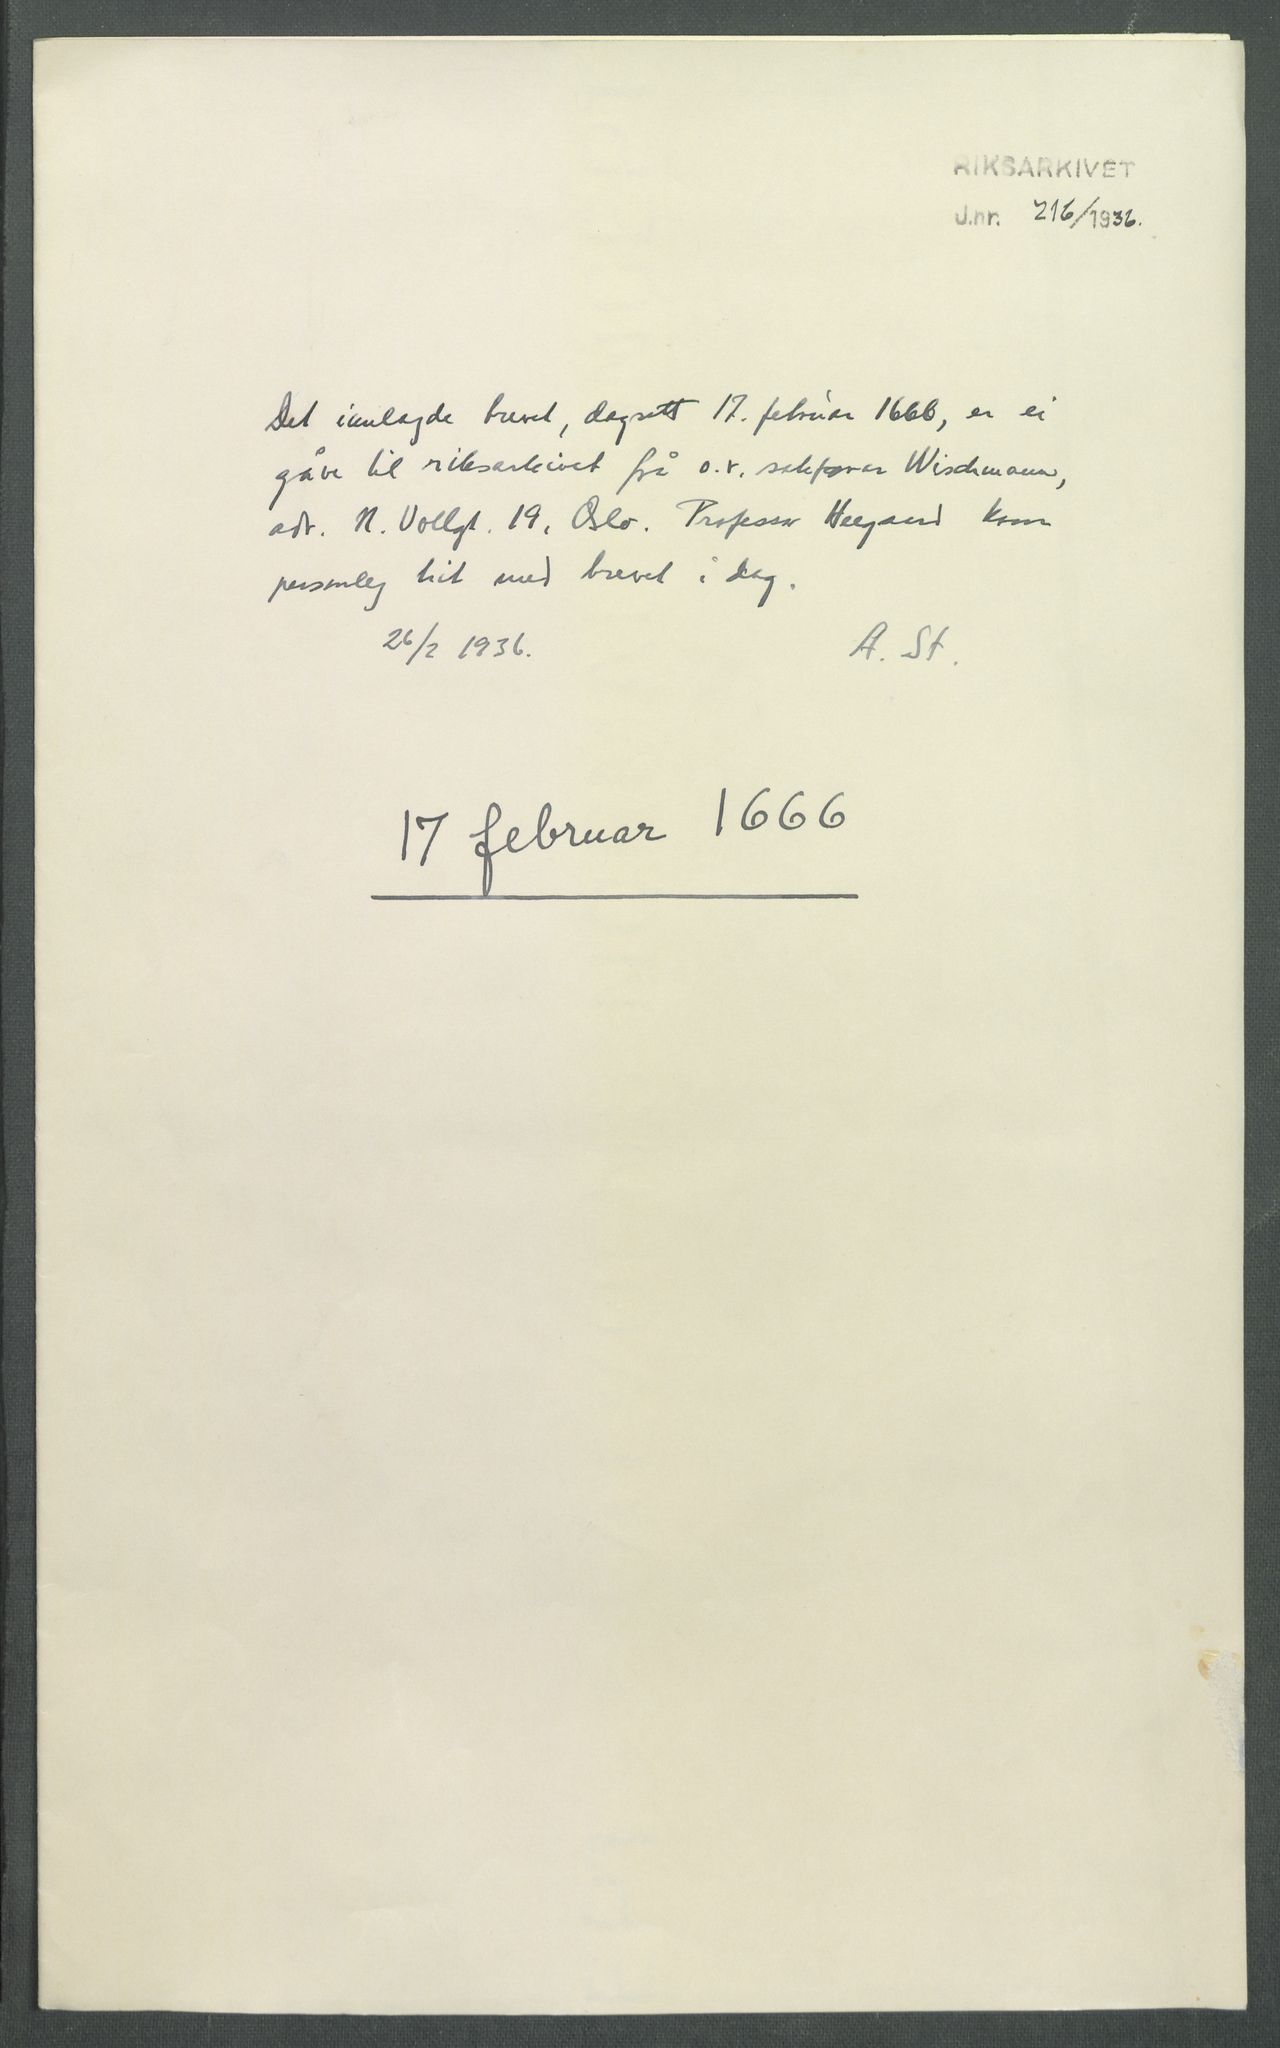 RIKSARKIVET
J.nr. 216/1936.
Det innlagde brevet, dagsett 17. februar 1666, er ei
gåve til riksarkivet frå o.r. sakførar Wischmann,
adr. N. Vollgt. 19, Oslo. Professor Heegaard kom
personleg hit med brevet i dag.
26/2 1936. A. St.
17 februar 1666